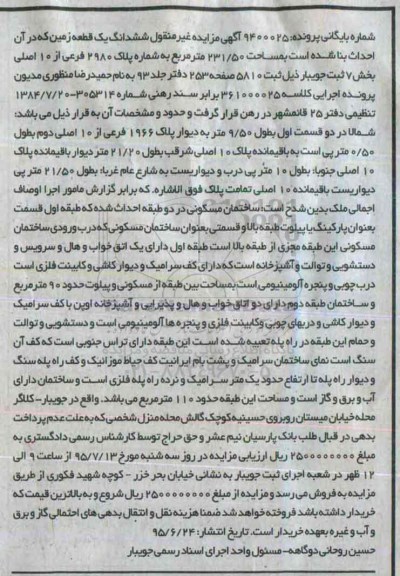 شماره بایگانی پرونده: ۹۴۰۰۰۲۵ آگهی مزایده غیرمنقول ششدانگ یک قطعه زمین که در آن
احداث بنا شده است بمساحت ۲۳۱/۵۰ مترمربع به شماره پلاک ۲۹۸۰ فرعی از ۱۰ اصلی
بخش ۷ ثبت جویبار ذیل ثبت ۵۸۱۰ صفحه ۲۵۳ دفتر جلد ۹۳ به نام حمیدرضا منظوری مدیون
پرونده اجرایی کلاسه ۳۶۱۰۰۰۰۲۵ برابر سند رهنی شماره ۳۰۵۳۱۴-۱۳۸۴/۷/۲۰
تنظیمی دفتر ۲۵ قائمشهر در رهن قرار گرفت و حدود و مشخصات آن به قرار ذیل می باشد:
شمالا در دو قسمت اول بطول ۹/۵۰ متر به دیوار پلاک ۱۹۶۶ فرعی از ۱۰ اصلی دوم بطول
۰/۵۰ متر پی است به باقیمانده پلاک ۱۰ اصلی شرقا بطول ۲۱/۲۰ متر دیوار باقیمانده پلاک
۱۰ اصلی جنوبا: بطول ۱۰ متر پی درب و دیواریست به شارع عام غربا: بطول ۲۱/۵۰ متر پی
دیواریست باقیمانده ۱۰ اصلی تمامت پلاک فوق الاشاره. که برابر گزارش مامور اجرا اوصاف
اجمالی ملک بدین شرح است، ساختمان مسکونی در دو طبقه احداث شده که طبقه اول قسمت
بعنوان پارکینگ یا پیلوت طبقه بالا و قسمتی بعنوان ساختمان مسکونی که درب ورودی ساختمان
مسکونی این طبقه مجزی از طبقه بالا است طبقه اول دارای یک اتق خواب و هال و سرویس و
دستشویی و توالت و آشپزخانه است که دارای کف سرامیک و دیوار کاشی و کابینت فلزی است
درب چوبی و پنجره آلومینیومی است بمساحت بین طبقه از مسکونی و پیلوت حدود ۹۰ مترمربع
و ساختمان طبقه دوم دارای دو اتاق خواب و هال و پذیرایی و آشپزخانه اوپن با کف سرامیک
و دیوار کاشی و دربهای چوبی و کابینت فلزی و پنجره ها آلومینیومی است و دستشویی و توالت
و حمام این طبقه در راه پله تعبیه شده است این طبقه دارای تراس جنوبی است که کف آن
سنگ است نمای ساختمان سرامیک و پشت بام ایرانیت کف حیاط موزائیک و کف راه پله سنگ
و دیوار راه پله تا ارتفاع حدود یک متر سرامیک و نرده راه پله فلزی است و ساختمان دارای
آب و برق و گاز است و مساحت این طبقه حدود ۱۱۰ مترمربع می باشد. واقع در جویبار- کلاگر
محله خیابان میستان روبروی حسینیه کوچک گالش محله منزل شخصی که به علت عدم پرداخت
بدهی در قبال طلب بانک پارسیان نیم عشر و حق حراج توسط کارشناس رسمی دادگستری به
مبلغ ۲۵۰۰۰۰۰۰۰۰ ریال ارزیابی مزایده در روز سه شنبه مورخ ۹۵/۷/۱۳ از ساعت ۹ الی
۱۲ ظهر در شعبه اجرای ثبت جویبار به نشانی خیابان بحر خزر - کوچه شهید فکوری از طریق
مزایده به فروش می رسد و مزایده از مبلغ ۲۵۰۰۰۰۰۰۰۰ ریال شروع و به بالاترین قیمت که
خریدار داشته باشد فروخته خواهد شد ضمنا هزینه نقل و انتقال بدهی های احتمالی گاز و برق
و آب و غیره بعهده خریدار است. تاریخ انتشار: ۹۵/۶/۲۴
حسین روحانی دوگاهه- مسئول واحد اجرای اسناد رسمی جویبار